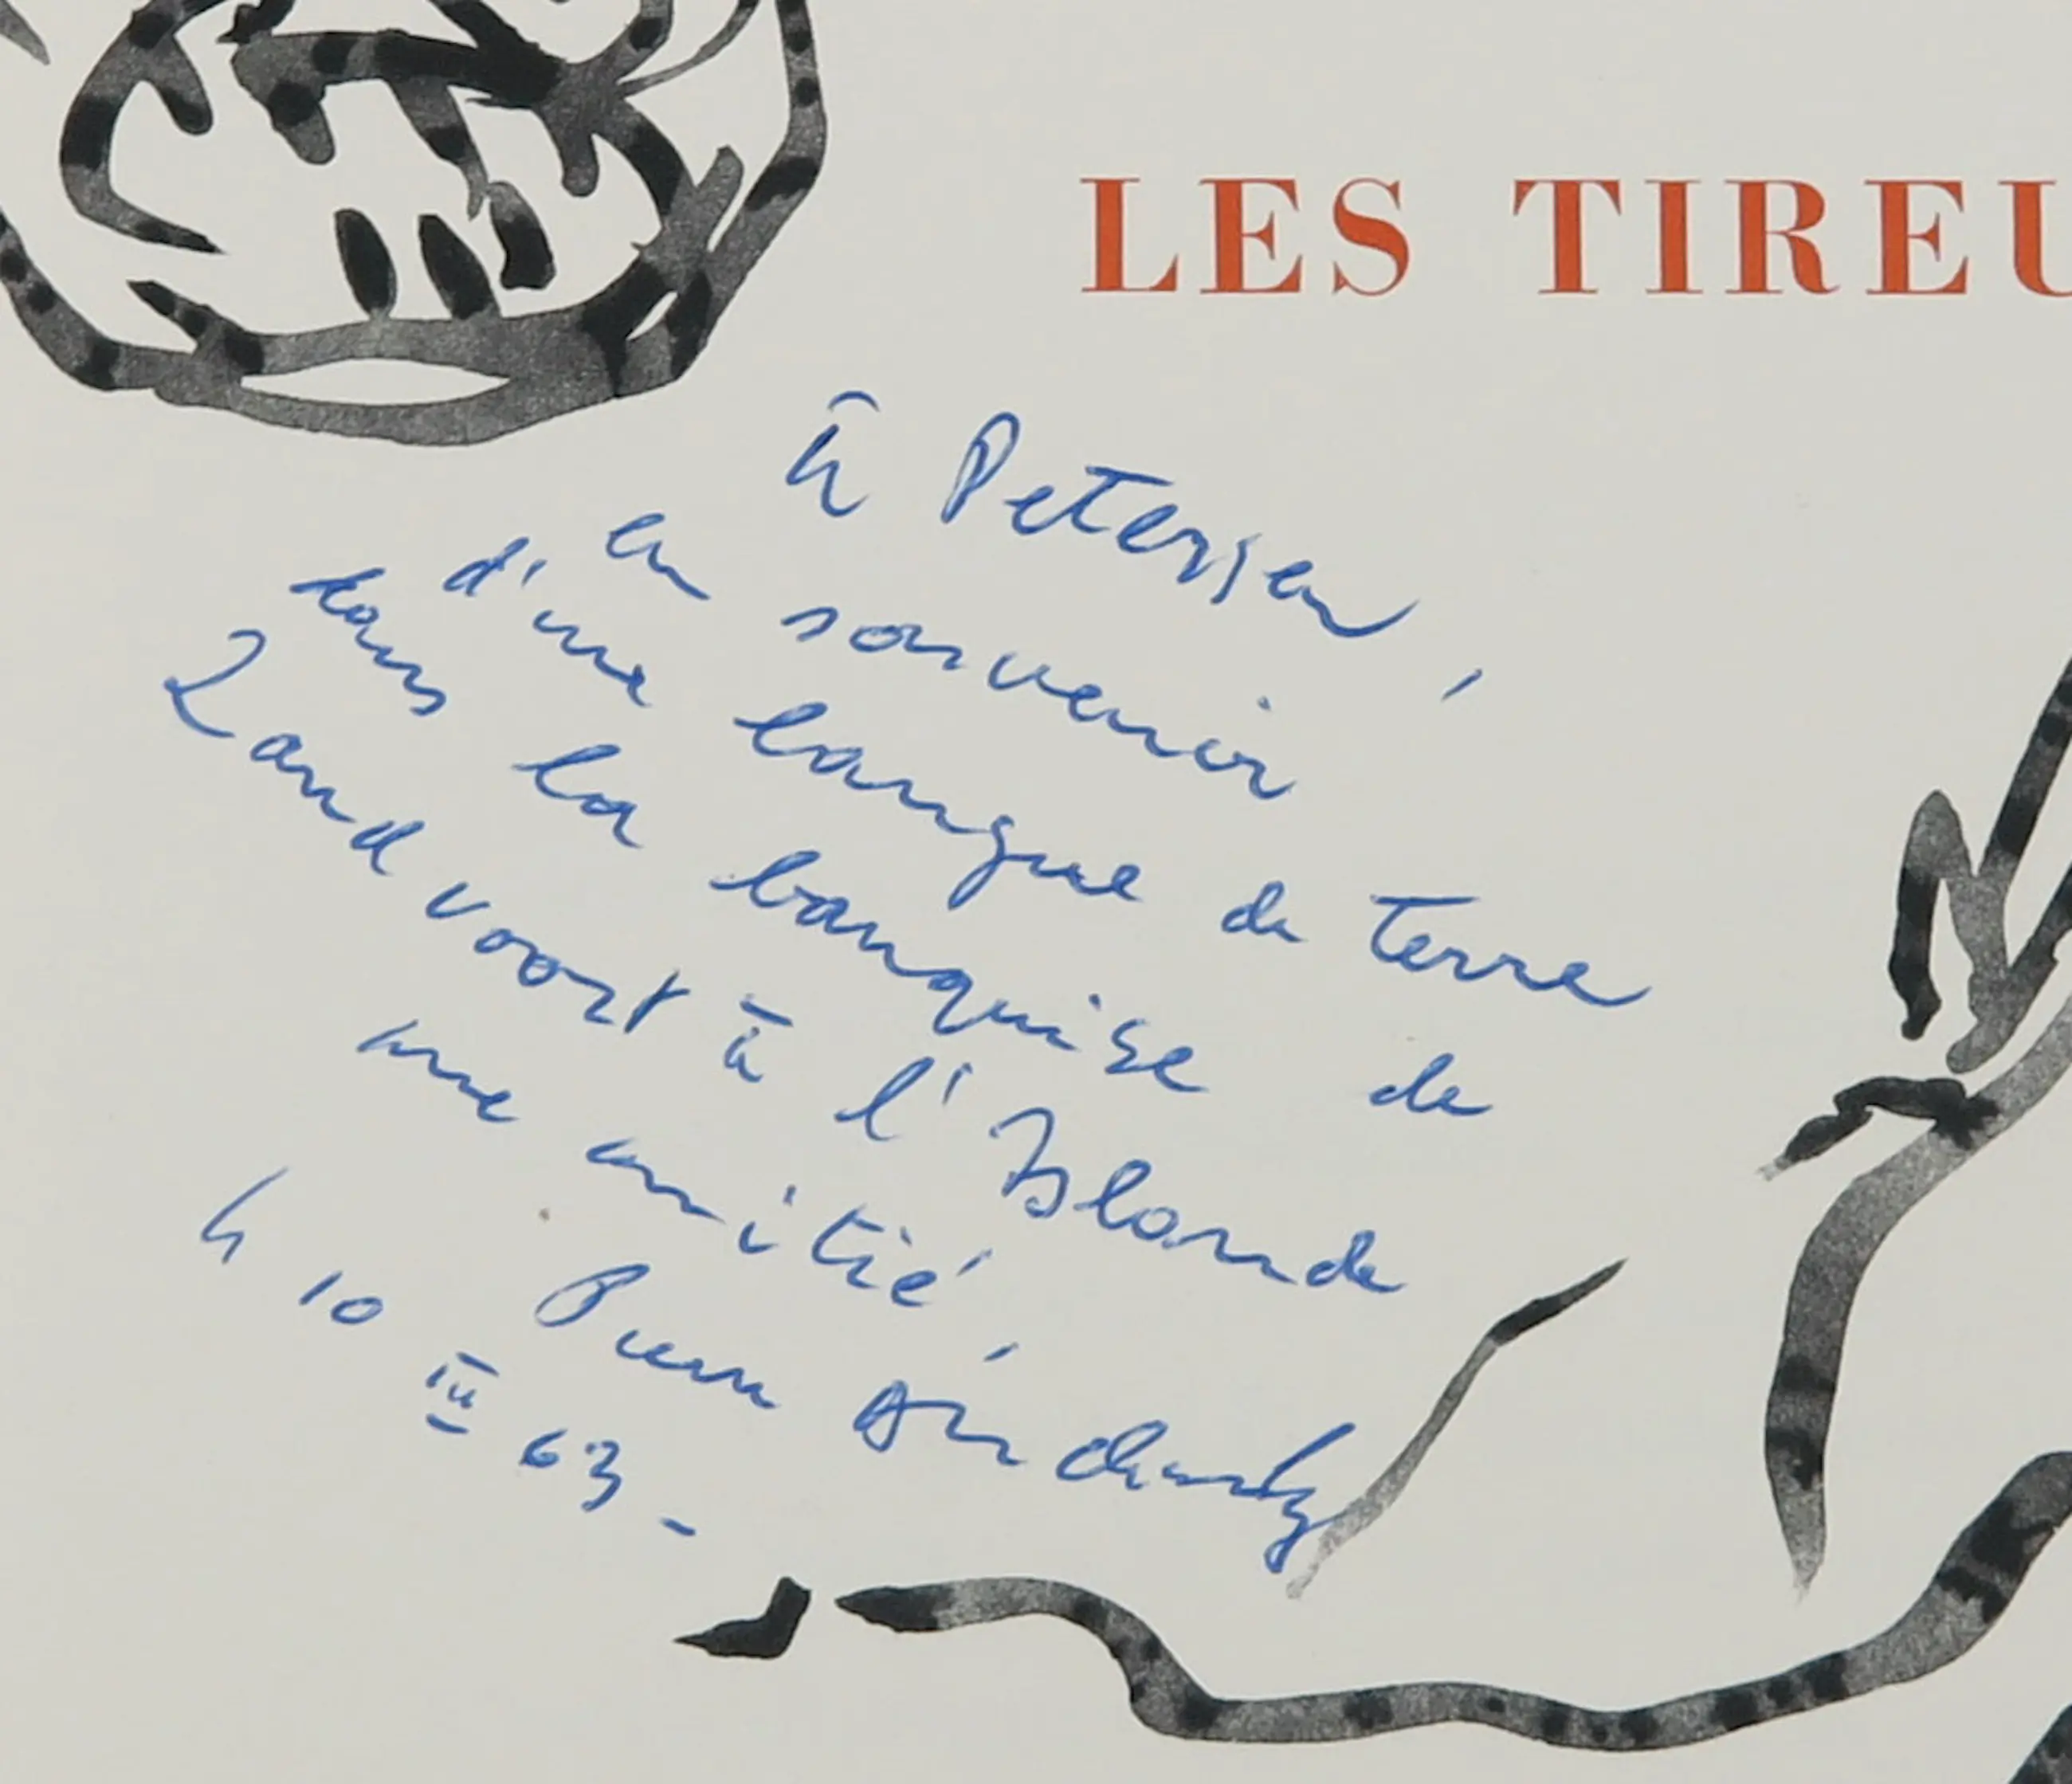 LES TIREU
à Petersen,
en souvenir
d'une langue de terre
dans la banquise de
Landvoort à l'Islande
une amitié
Pierre Alechinsky
le 10 III 63 -